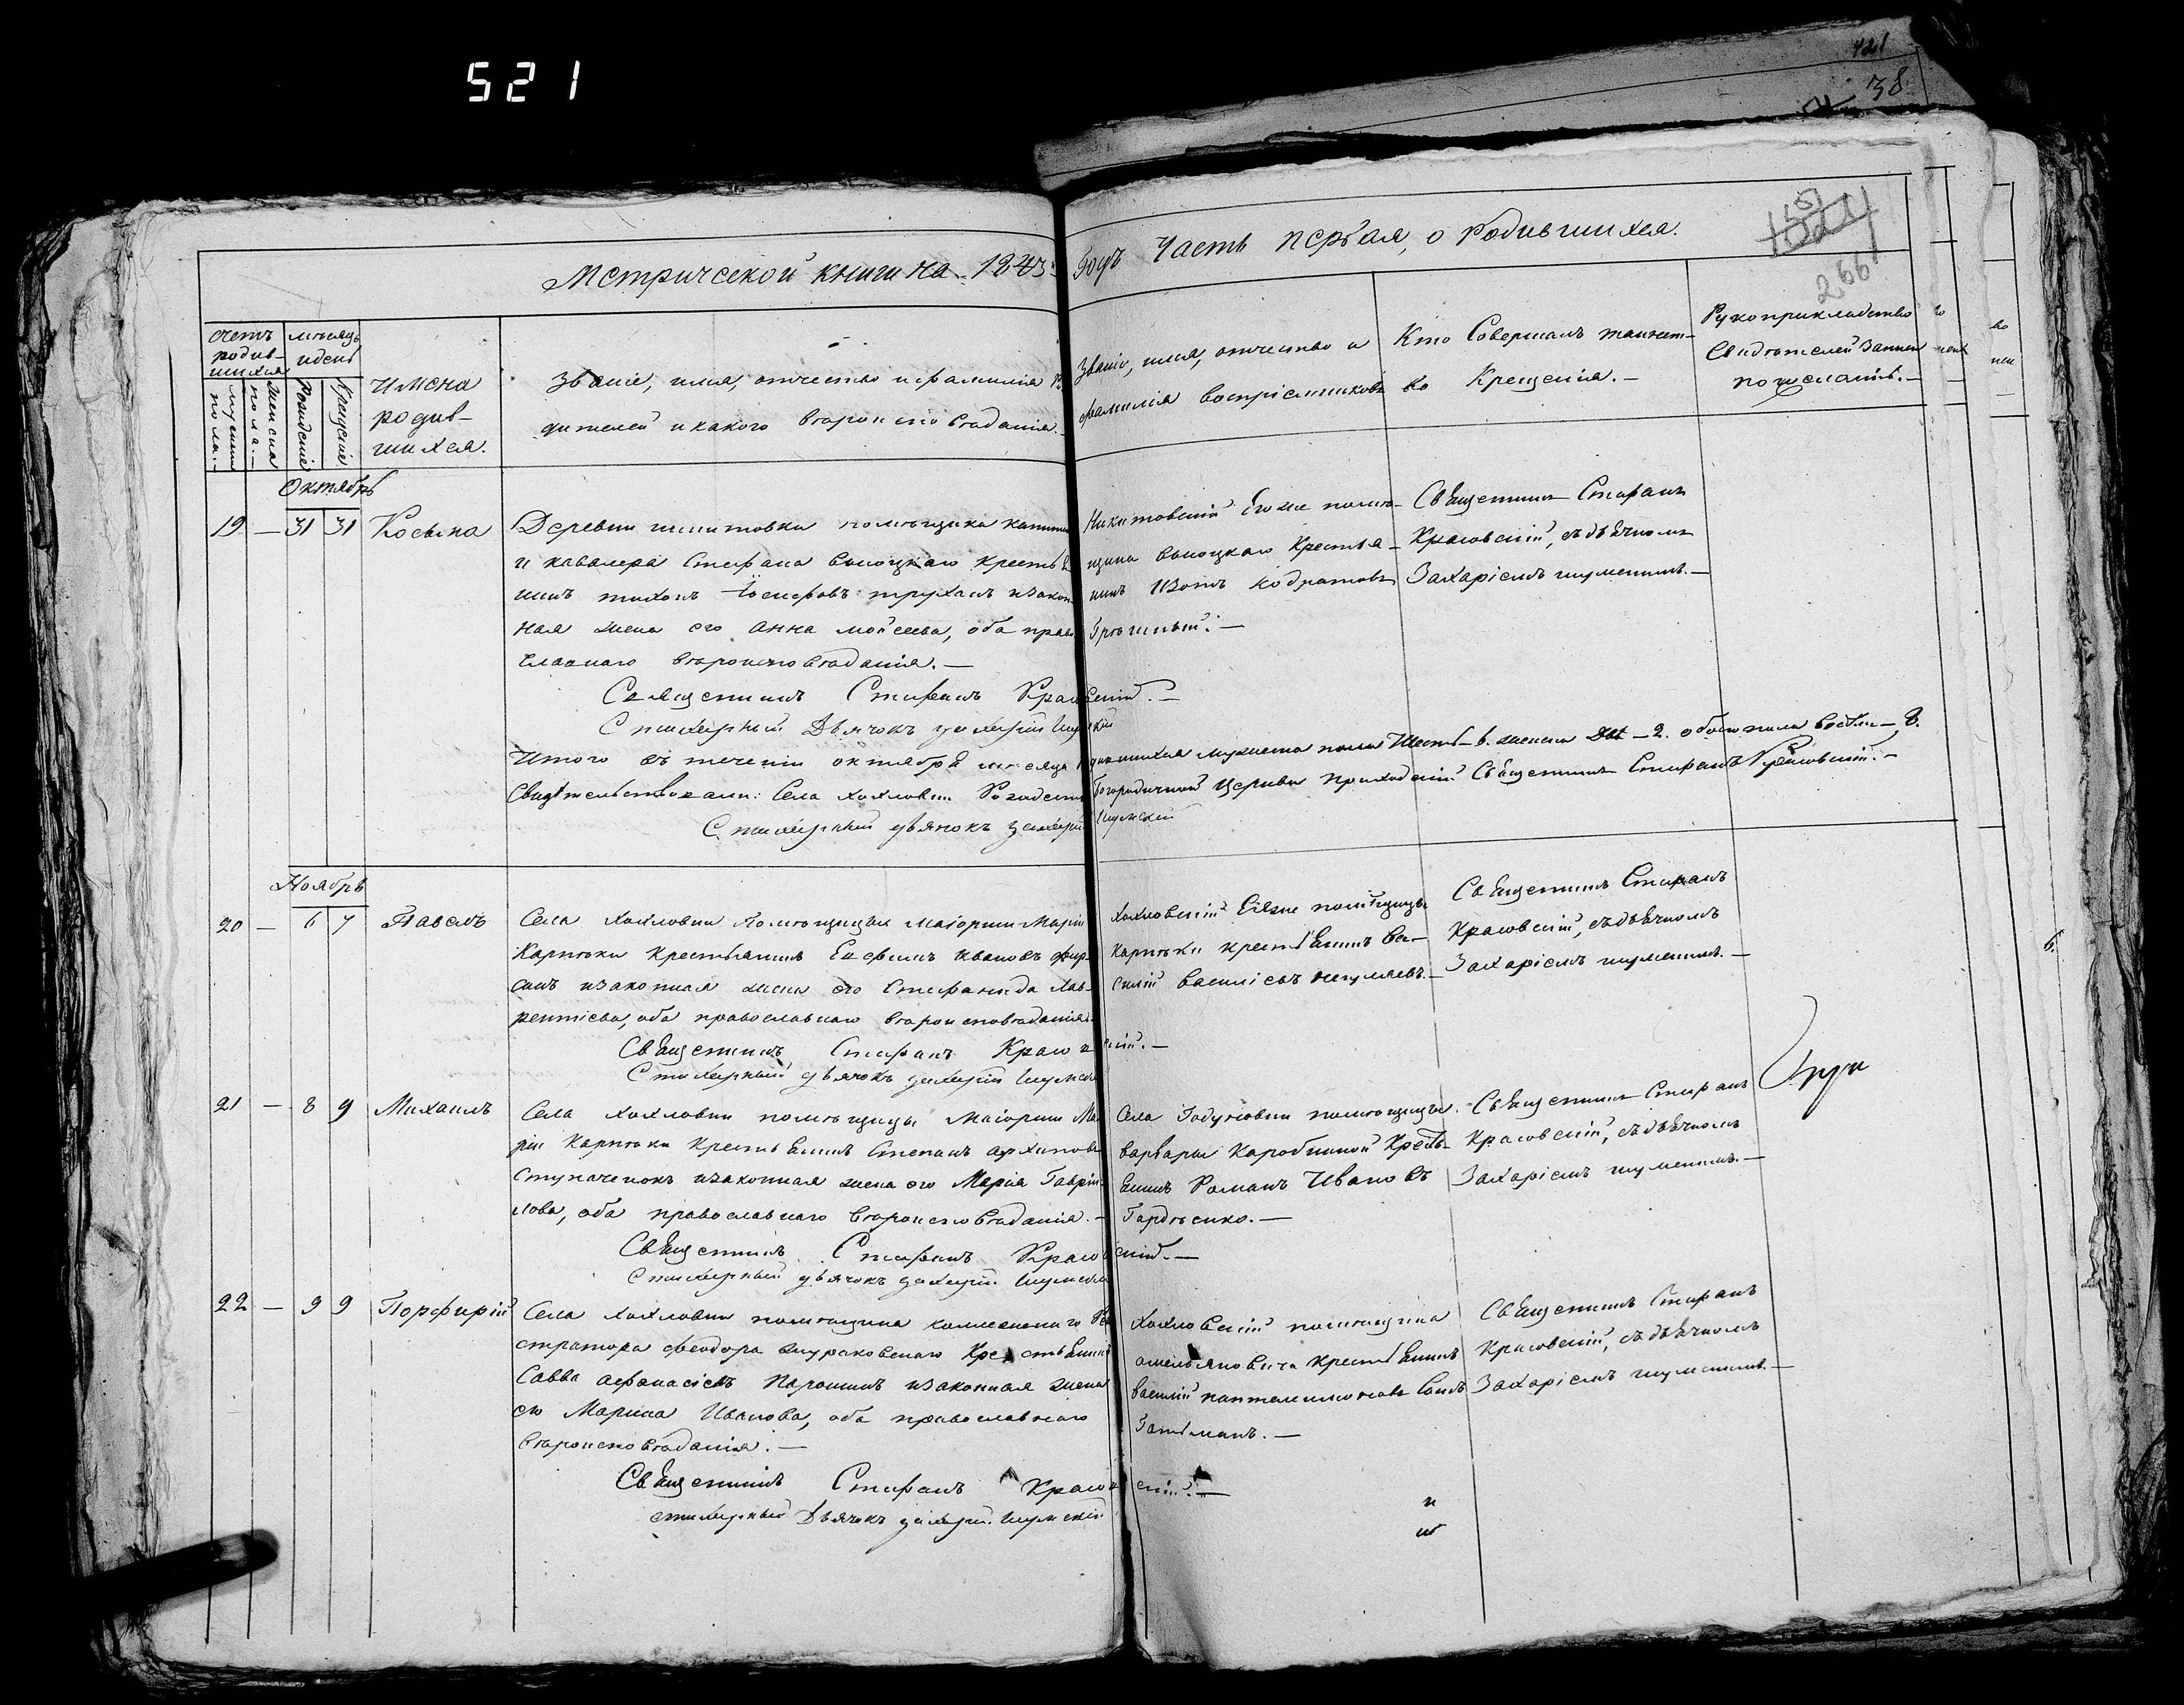 521
421
38
Метрической книги на 1843й
Годъ Часть первая, о родившихся.
1021
151
266
счетъ родив-шихся
мѣсяцъ и день
мужеска пола.
женска пола.
Рожденіе
Крещеніе
Имена
родив-
шихся.
Званіе, имя, отчество и фамилія Ро
дителей и какого вѣроисповѣданія.
Званіе, имя, отчество и
фамилія воспріемниковъ
Кто Совершалъ таинст-
во Крещенія.—
Рукоприкладство
Свидѣтелей записи
по желанію.—
Октябрь
19 — 31 31 Косьма
Деревни помѣщика
и кавалера Стефана Высоцкаго крестья
нинъ Тихонъ Іосифовъ Труханъ и закон-
ная жена его Анна Моѵсеева, оба право
славнаго вѣроисповѣданія.—
Священникъ Стефанъ Красовскій.—
Стихарный Дьячокъ Захарій Шумскій
Никитовскій Его же помѣ-
щика Высоцкаго Крестья-
нинъ Изотъ Кодратовъ
Священникъ Стефанъ
Красовскій, съ дьячкомъ
Захаріемъ Шумскимъ.—
Итого въ теченіи октября мѣсяца родившихся мужеска пола Шесть—6. женска Двѣ—2. обоего пола восѣмь—8.
Свидѣтельствовали: Села Хохловки Рождество Богородичной Церкви приходскій Священникъ Стефанъ Красовскій.—
Стихарный дьячокъ Захарій Шумскій
Ноябрь
20 — 6 7 Павелъ
Села Хохловки помѣщицы Маіорши Маріи
Карпѣки Крестьянинъ Евфимъ Ивановъ
и законная жена его Стефанида Лав-
рентіева, оба православнаго вѣроисповѣданія.
Священникъ Стефанъ Красовскій.—
Стихарный дьячокъ Захарій Шумскій
Хохловскій Ейже помѣщицы
Карпѣки крестьянинъ Ва-
силій Василіевъ
Священникъ Стефанъ
Красовскій, съ дьячкомъ
Захаріемъ Шумскимъ.—
21 — 8 9 Михаилъ
Села Хохловки помѣщицы Маіорши Ма
ріи Карпѣки Крестьянинъ Степанъ Архиповъ
Ступаченокъ и законная жена его Марія Гаврій-
лова, оба православнаго вѣроисповѣданія.—
Священникъ Стефанъ Красовскій.—
Стихарный дьячокъ Захарій Шумскій
Села Годуновки помѣщицы
Варвары Каробкиной Кресть-
янинъ Романъ Ивановъ
Гордѣенко.—
Священникъ Стефанъ
Красовскій, съ дьячкомъ
Захаріемъ Шумскимъ.—
22 — 9 9 Порфирій
Села Хохловки помѣщика коллежскаго Реги
стратора Феодора Крестьянинъ
Савва Афанасіевъ Парошинъ и законная жена
его Марина Иванова, оба православнаго
вѣроисповѣданія.—
Священникъ Стефанъ Красовскій.—
стихарный Дьячокъ Захарій Шумскій
Хохловскій помѣщика
Омельяновича крестьянинъ
Василій Пантелеимоновъ сынъ
Гатьманъ.—
Священникъ Стефанъ
Красовскій, съ дьячкомъ
Захаріемъ Шумскимъ.—